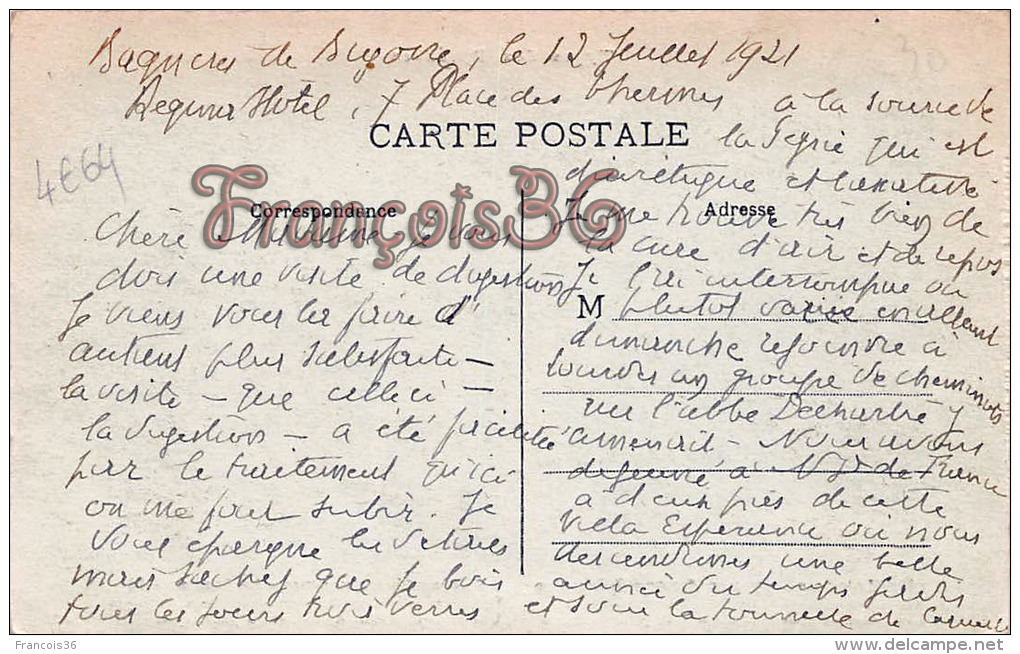 Bagneres de Bigorre, le 12 Juillet 1921
Regina Hotel, 7 Place des Thermes
CARTE POSTALE
4€64
30
François36
Correspondance
Chère je vous
dois une visite de digestion
Je viens vous la faire d'
autant plus satisfaite -
la visite - que celle ci -
la digestion - a été facilitée
par le traitement qu'ici
on me fait subir. Je
vous épargne les détails
mais sachez que je bois
tous les jours trois verres
à la source de
la qui est
diurétique et laxative
Je me trouve très bien de
Adresse
la cure d'air et de repos
Je l'ai interrompue ou
M plutot variée en allant
dimanche rejoindre à
Lourdes un groupe de cheminots
que l'abbé y
amenait - Nous avons
dejeuné à N D de France
a deux pas de cette
Villa Esperance où nous
descendimes une belle
année du temps jadis
et sous la tonnelle de
Francois36
www.delcampe.net